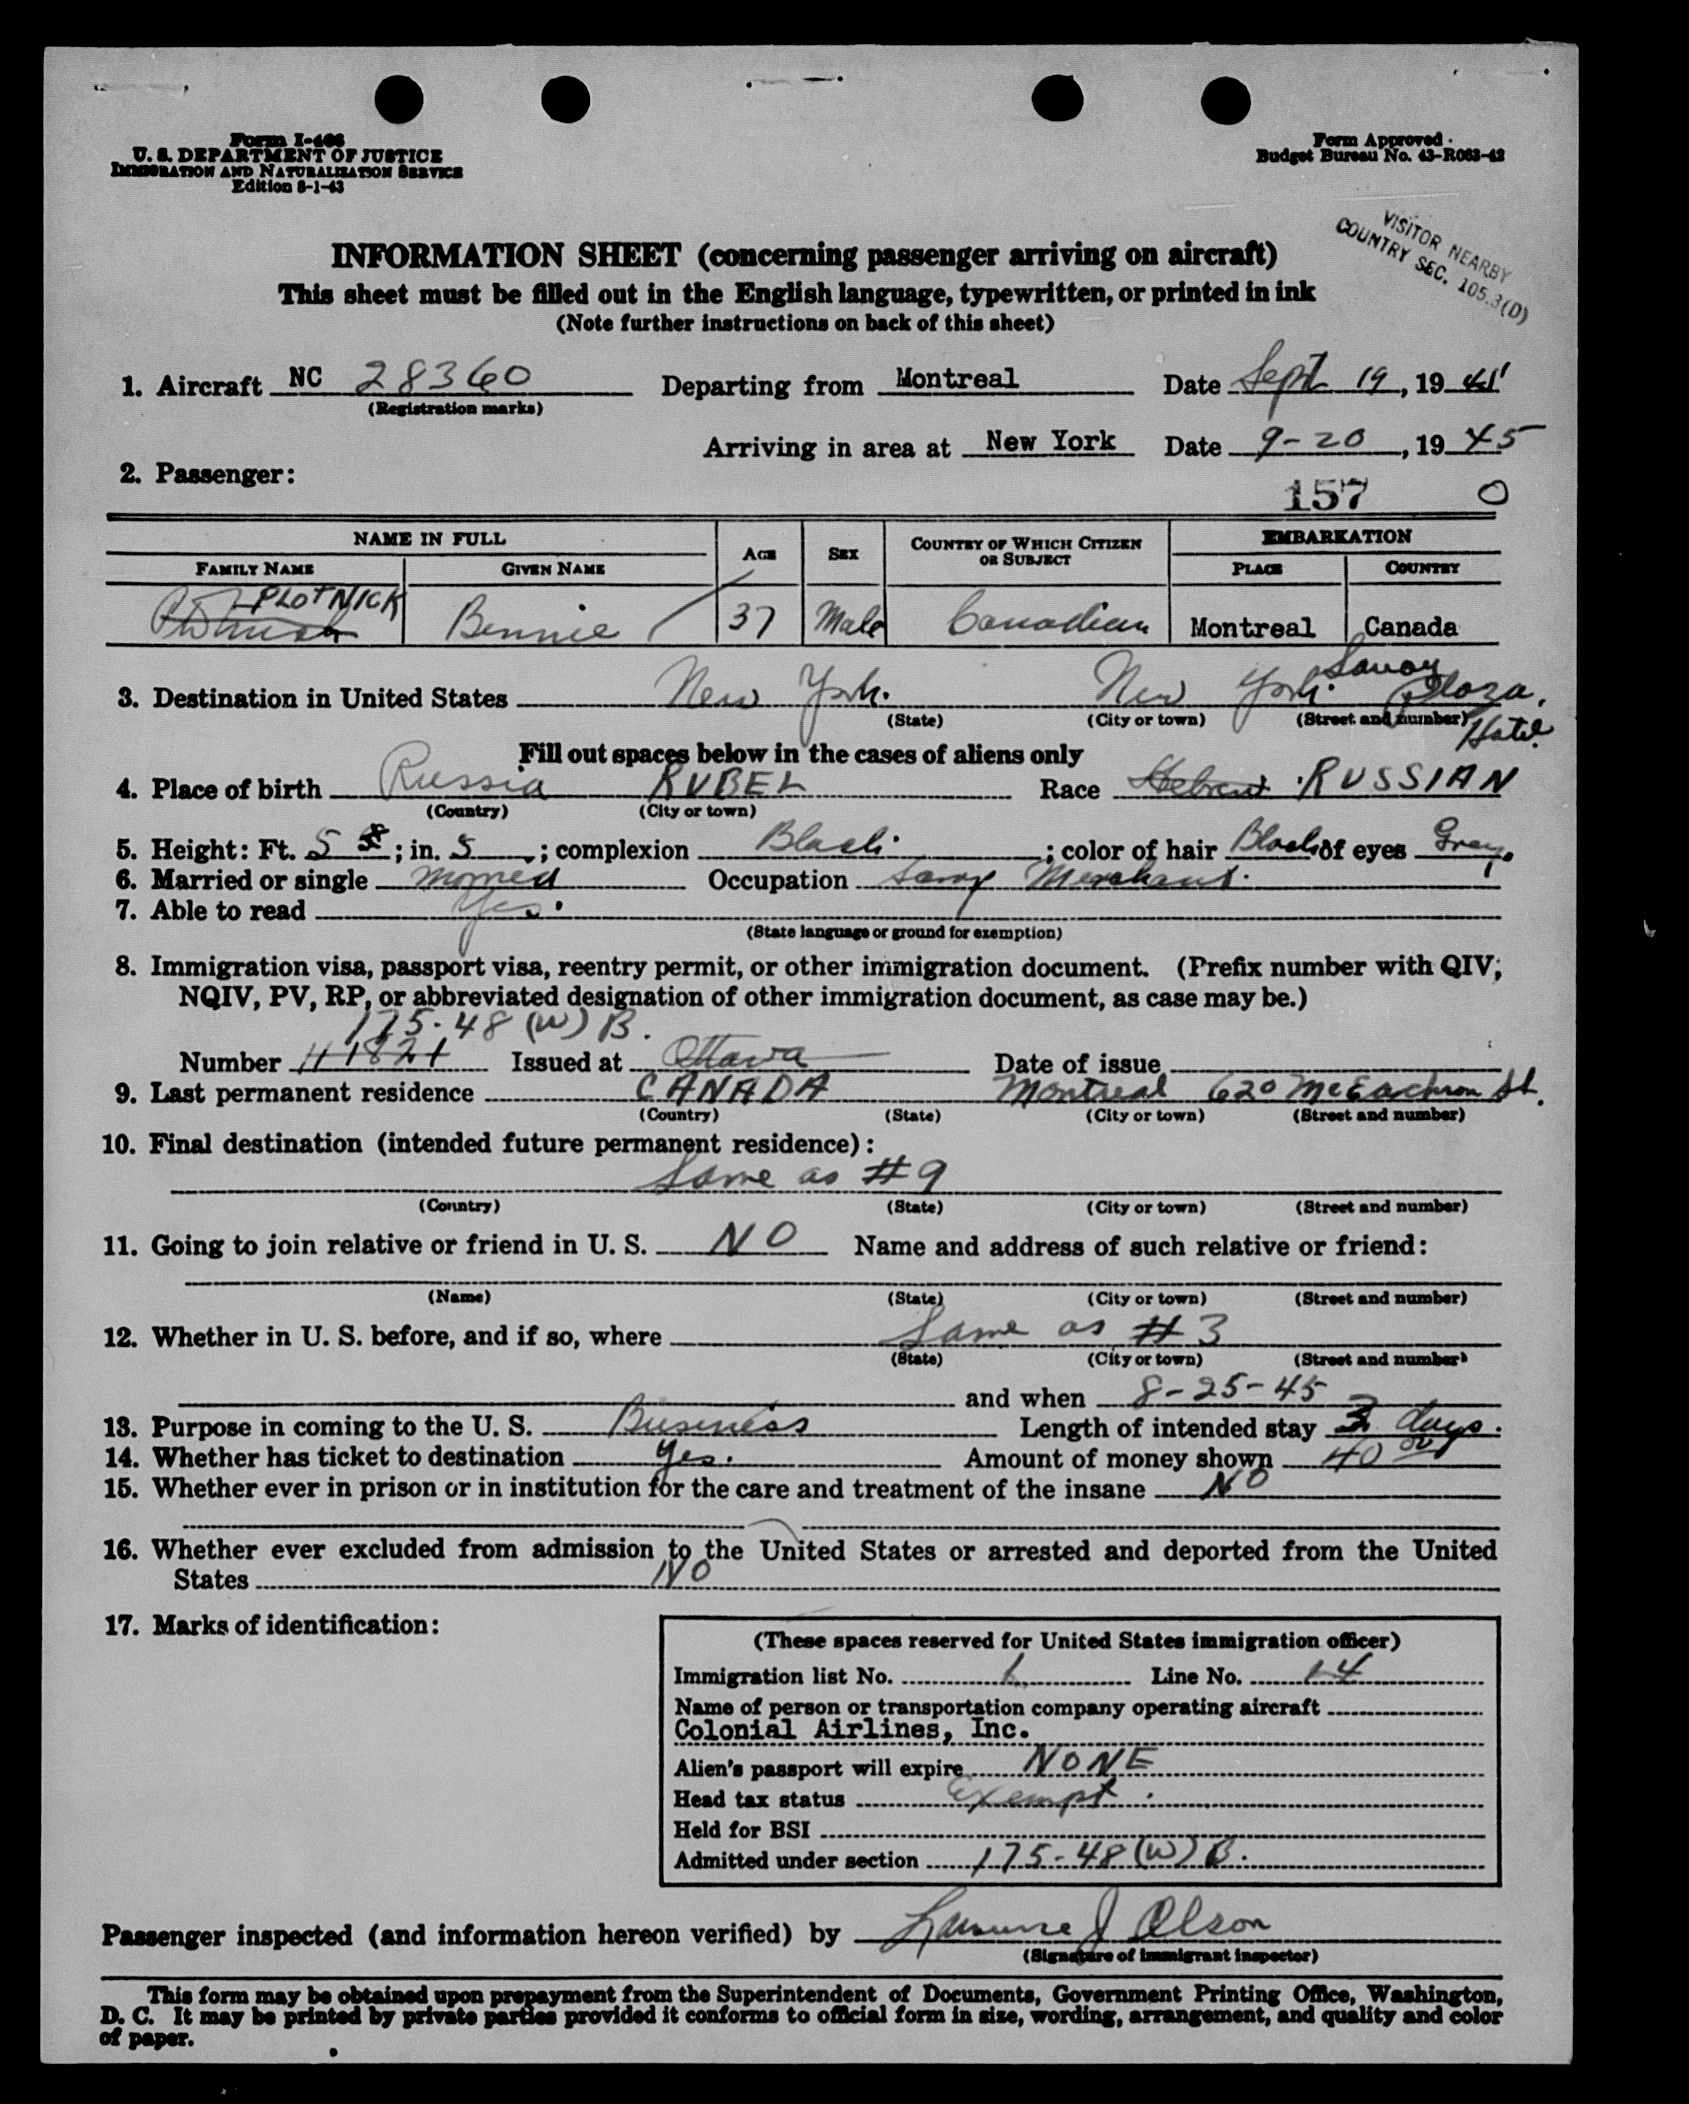 Form I-466
U. S. DEPARTMENT OF JUSTICE
IMMIGRATION AND NATURALIZATION SERVICE
Edition 8-1-43
Form Approved
Budget Bureau No. 43-R063-42
VISITOR NEARBY
COUNTRY SEC. 105.3(D)
INFORMATION SHEET (concerning passenger arriving on aircraft)
This sheet must be filled out in the English language, typewritten, or printed in ink
(Note further instructions on back of this sheet)
1. Aircraft NC 28360 Departing from Montreal Date Sept 19, 19
(Registration marks)
Arriving in area at New York Date 9-20, 19 45
2. Passenger:
157 0
NAME IN FULL AGE SEX COUNTRY OF WHICH CITIZEN OR SUBJECT EMBARKATION
FAMILY NAME GIVEN NAME PLACE COUNTRY
PLOTNICK Bennie 37 Male Canadian Montreal Canada
3. Destination in United States New York. New York. Savoy Plaza, Hotel.
(State) (City or town) (Street and number)
Fill out spaces below in the cases of aliens only
4. Place of birth Russia RUBEL Race Hebrew RUSSIAN
(Country) (City or town)
5. Height: Ft. 5 ; in. 5 ; complexion Black ; color of hair Black of eyes Grey.
6. Married or single Married Occupation Merchant.
7. Able to read Yes.
(State language or ground for exemption)
8. Immigration visa, passport visa, reentry permit, or other immigration document. (Prefix number with QIV,
NQIV, PV, RP, or abbreviated designation of other immigration document, as case may be.)
175-48 (W) B.
Number 11821 Issued at Ottawa Date of issue
9. Last permanent residence CANADA Montreal 620 McEachron St.
(Country) (State) (City or town) (Street and number)
10. Final destination (intended future permanent residence):
Same as #9
(Country) (State) (City or town) (Street and number)
11. Going to join relative or friend in U. S. NO Name and address of such relative or friend:
(Name) (State) (City or town) (Street and number)
12. Whether in U. S. before, and if so, where Same as #3
(State) (City or town) (Street and number)
and when 8-25-45
13. Purpose in coming to the U. S. Business Length of intended stay 3 days.
14. Whether has ticket to destination Yes. Amount of money shown 40 00
15. Whether ever in prison or in institution for the care and treatment of the insane NO
16. Whether ever excluded from admission to the United States or arrested and deported from the United
States NO
17. Marks of identification:
(These spaces reserved for United States immigration officer)
Immigration list No. 1 Line No. 14
Name of person or transportation company operating aircraft
Colonial Airlines, Inc.
Alien's passport will expire NONE
Head tax status Exempt.
Held for BSI
Admitted under section 175-48 (W) B.
Passenger inspected (and information hereon verified) by J Olson
(Signature of immigrant inspector)
This form may be obtained upon prepayment from the Superintendent of Documents, Government Printing Office, Washington,
D. C. It may be printed by private parties provided it conforms to official form in size, wording, arrangement, and quality and color
of paper.